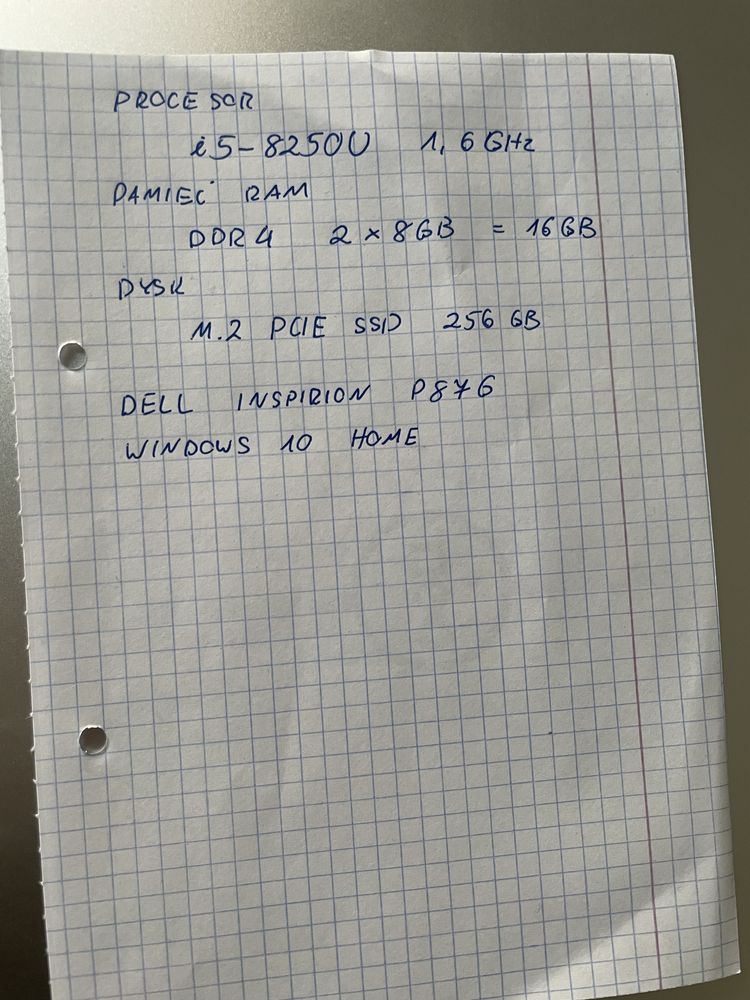 PROCESOR
i5-8250U 1,6 GHz
PAMIEĆ RAM
DDR4 2 x 8GB = 16GB
DYSK
M.2 PCIE SSD 256 GB
DELL INSPIRION P876
WINDOWS 10 HOME